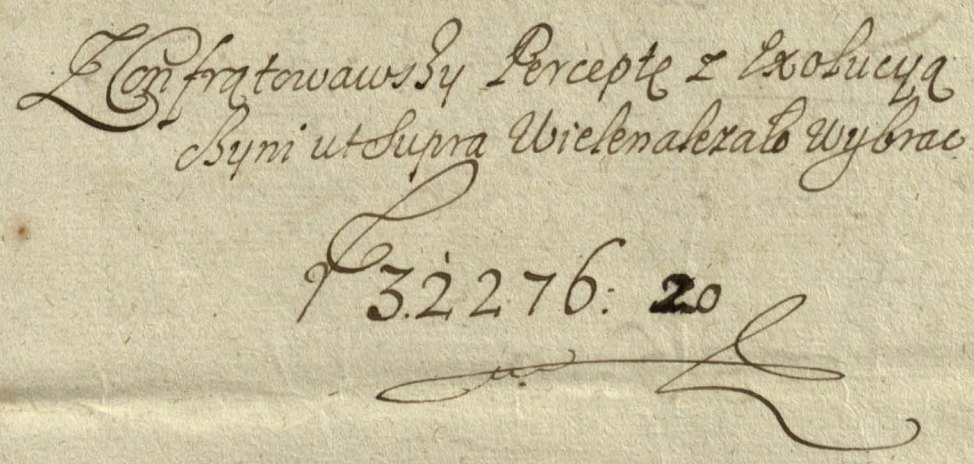 Zkonfrątowawszy Perceptę z Exolucyą
Czyni ut Supra Wiele należało Wybrac
f 32276: 20